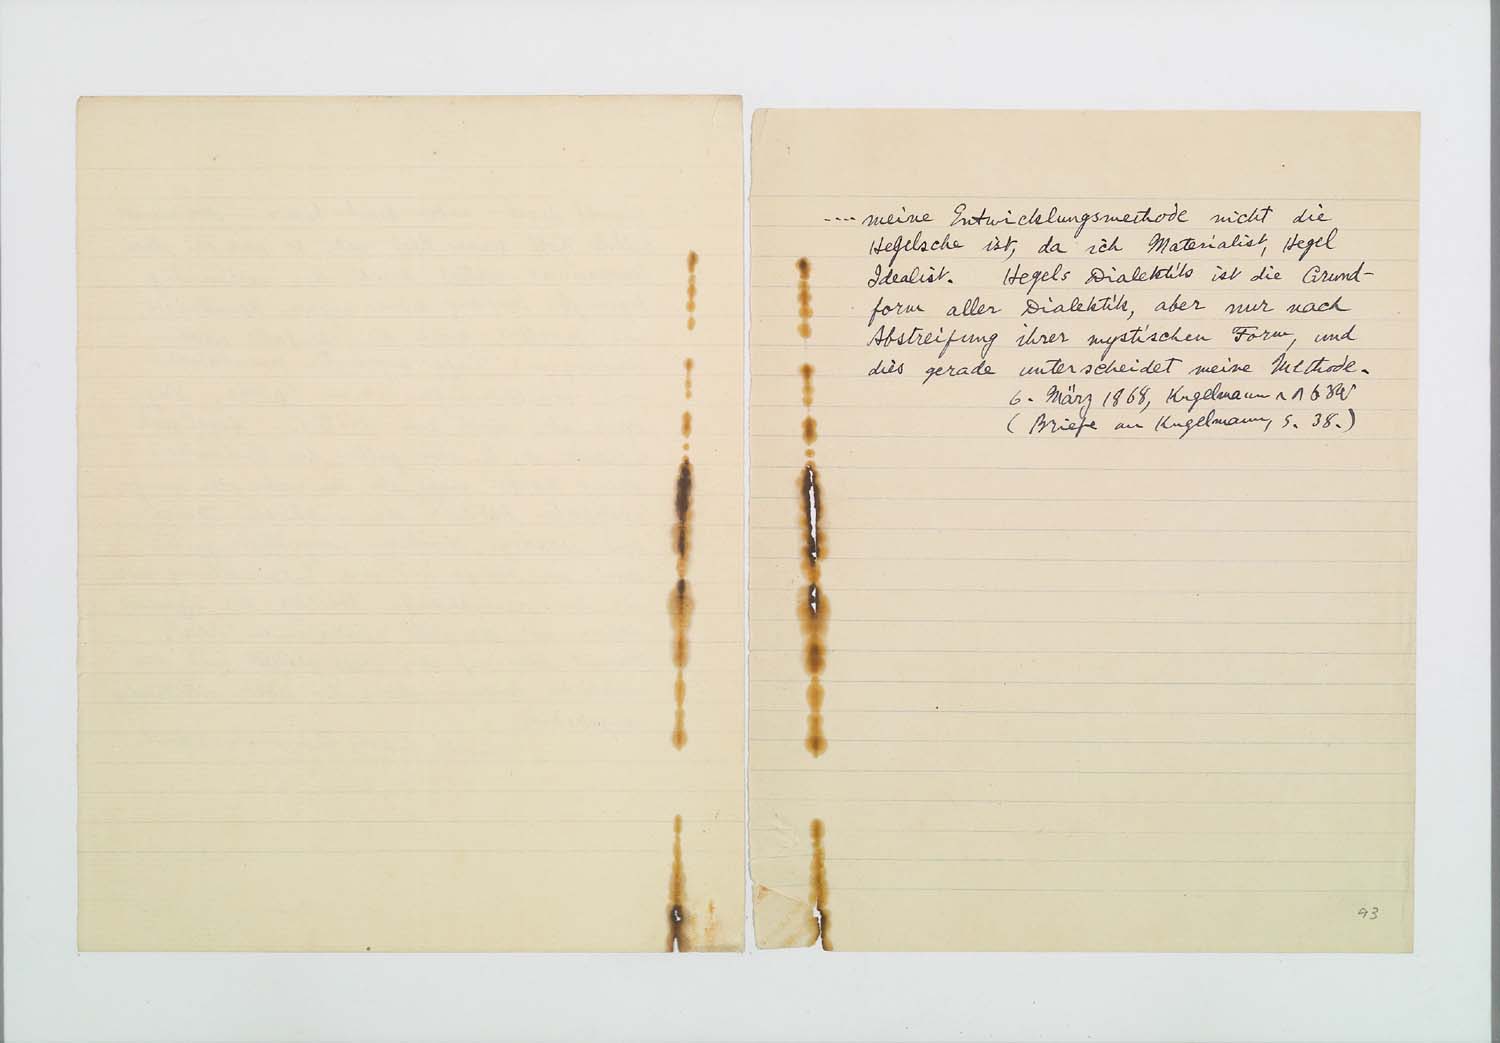 ---- meine Entwicklungsmethode nicht die
Hegelsche ist, da ich Materialist, Hegel
Idealist. Hegels Dialektik ist die Grund-
form aller Dialektik, aber nur nach
Abstreifung ihrer mystischen Form, und
dies gerade unterscheidet meine Methode.
6. März 1868, Kugelmann
(Briefe an Kugelmann, S. 38.)
93